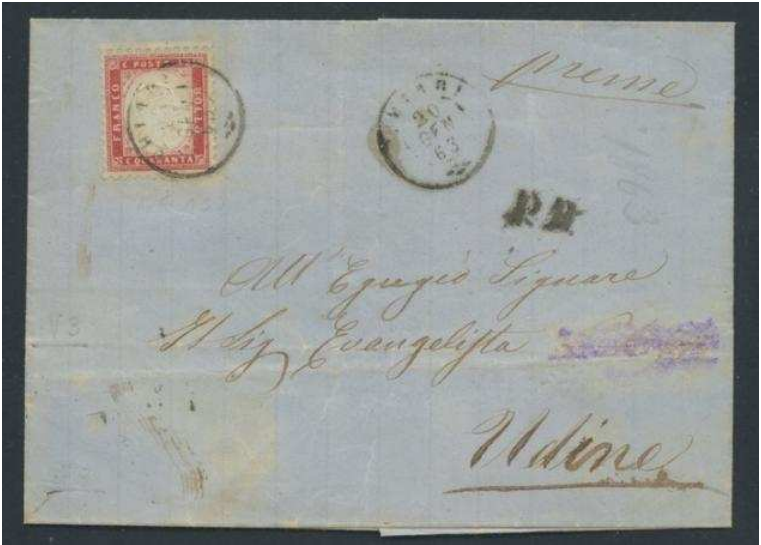 C. POSTE
FRANCO
BOLLO
C. QUARANTA
preme
20
GEN
63
P.D.
1863
All' Egregio Signore
Il Sig. Evangelista
Udine
V3